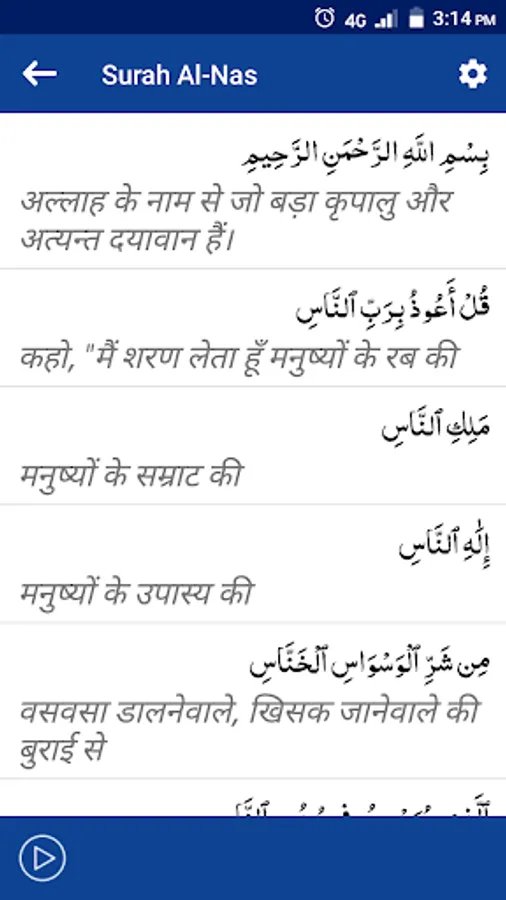 4G 3:14 PM
Surah Al-Nas
بِسْمِ اللَّهِ الرَّحْمَٰنِ الرَّحِيمِ
अल्लाह के नाम से जो बड़ा कृपालु और
अत्यन्त दयावान हैं।
قُلْ أَعُوذُ بِرَبِّ ٱلنَّاسِ
कहो, "मैं शरण लेता हूँ मनुष्यों के रब की
مَلِكِ ٱلنَّاسِ
मनुष्यों के सम्राट की
إِلَٰهِ ٱلنَّاسِ
मनुष्यों के उपास्य की
مِن شَرِّ ٱلْوَسْوَاسِ ٱلْخَنَّاسِ
वसवसा डालनेवाले, खिसक जानेवाले की
बुराई से